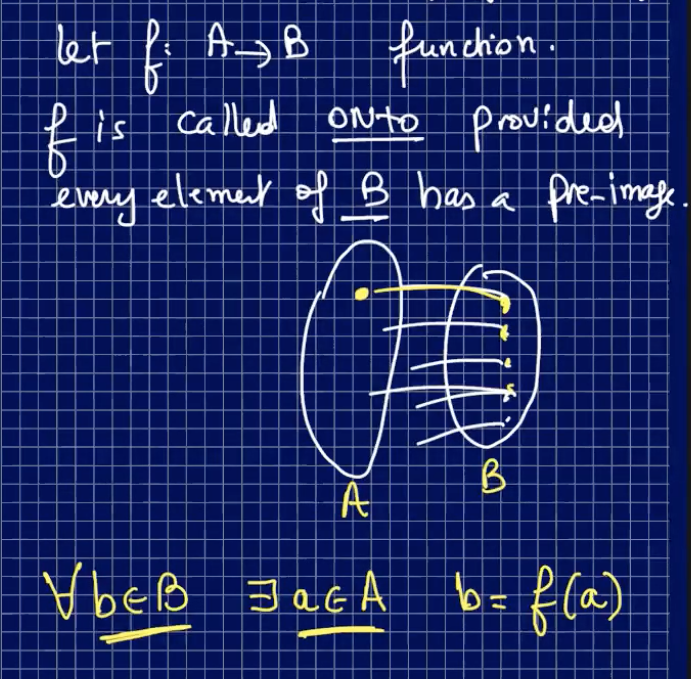 let f: A→B function.
f is called onto provided
every element of B has a pre-image.
A
B
∀ b∈B ∃ a∈A b = f(a)